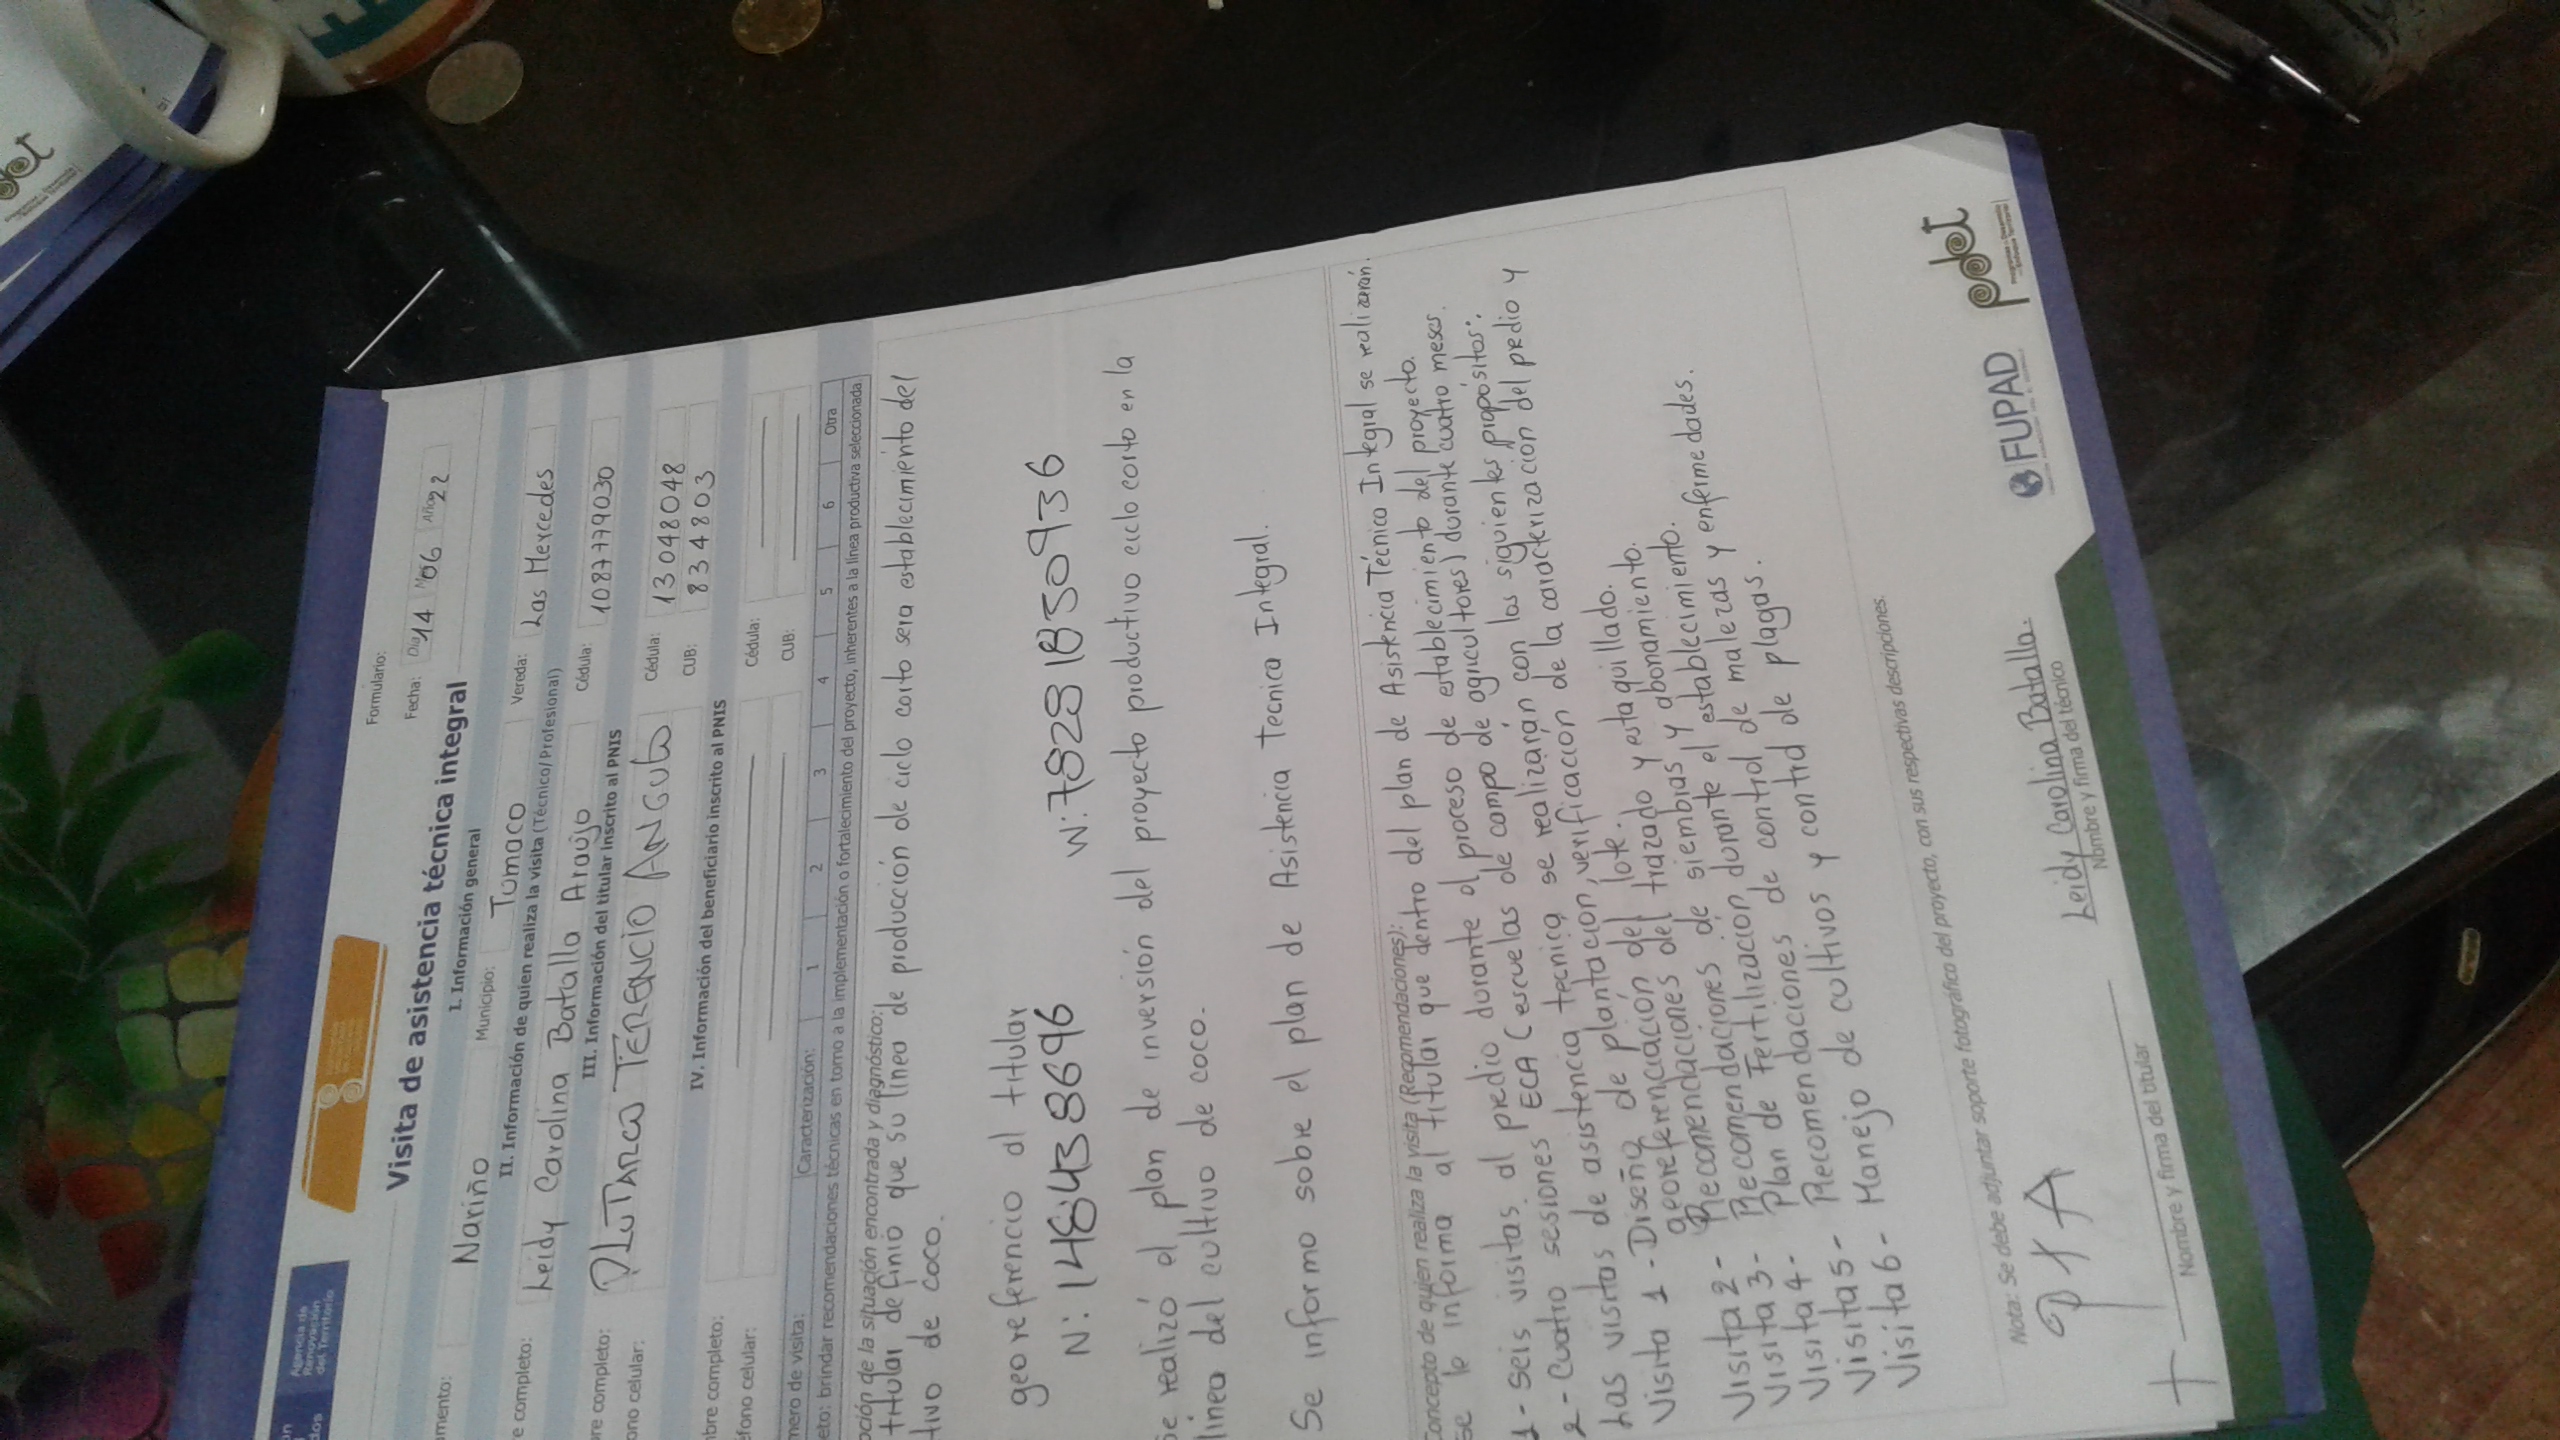 Agencia de
Renovación
del Territorio
Formulario:
Fecha: Día 14 Mes 06 Año 22
Visita de asistencia técnica integral
I. Información general
amento: Nariño Municipio: Tumaco Vereda: Las Mercedes
II. Información de quien realiza la visita (Técnico/Profesional)
e completo: Leidy Carolina Batalla Araujo Cédula: 1087779030
III. Información del titular inscrito al PNIS
re completo: PLUTARCO TERENCIO ANGULO Cédula: 13048048
ono celular: CUB: 834803
IV. Información del beneficiario inscrito al PNIS
bre completo: Cédula:
éfono celular: CUB:
mero de visita: Caracterización: 1 2 3 4 5 6 Otra
eto: brindar recomendaciones técnicas en torno a la implementación o fortalecimiento del proyecto, inherentes a la línea productiva seleccionada.
pción de la situación encontrada y diagnóstico:
titular definio que su linea de producción de ciclo corto sera establecimiento del
tivo de coco.
georeferencio al titular
N: 148438696 W: 78281830936
se realizó el plan de inversión del proyecto productivo ciclo corto en la
linea del cultivo de coco.
Se informo sobre el plan de Asistencia Tecnica Integral.
Concepto de quien realiza la visita (Recomendaciones):
Se le informa al titular que dentro del plan de Asistencia Técnica Integral se realizarán.
1 - Seis visitas al predio durante el proceso de establecimiento del proyecto.
2 - Cuatro sesiones ECA (escuelas de campo de agricultores) durante cuatro meses.
Las visitas de asistencia tecnica se realizarán con los siguientes propósitos:
Visita 1 - Diseño de plantación, verificación de la caracterización del predio y
georeferenciación del lote.
Visita 2 - Recomendaciones del trazado y estaquillado.
Visita 3 - Recomendaciones de siembras y abonamiento.
Visita 4 - Plan de Fertilización durante el establecimiento.
Visita 5 - Recomendaciones de control de malezas y enfermedades.
Visita 6 - Manejo de cultivos y control de plagas.
Nota: Se debe adjuntar soporte fotográfico del proyecto, con sus respectivas descripciones.
P T A
Leidy Carolina Batalla.
Nombre y firma del titular
Nombre y firma del técnico
FUPAD
pdet